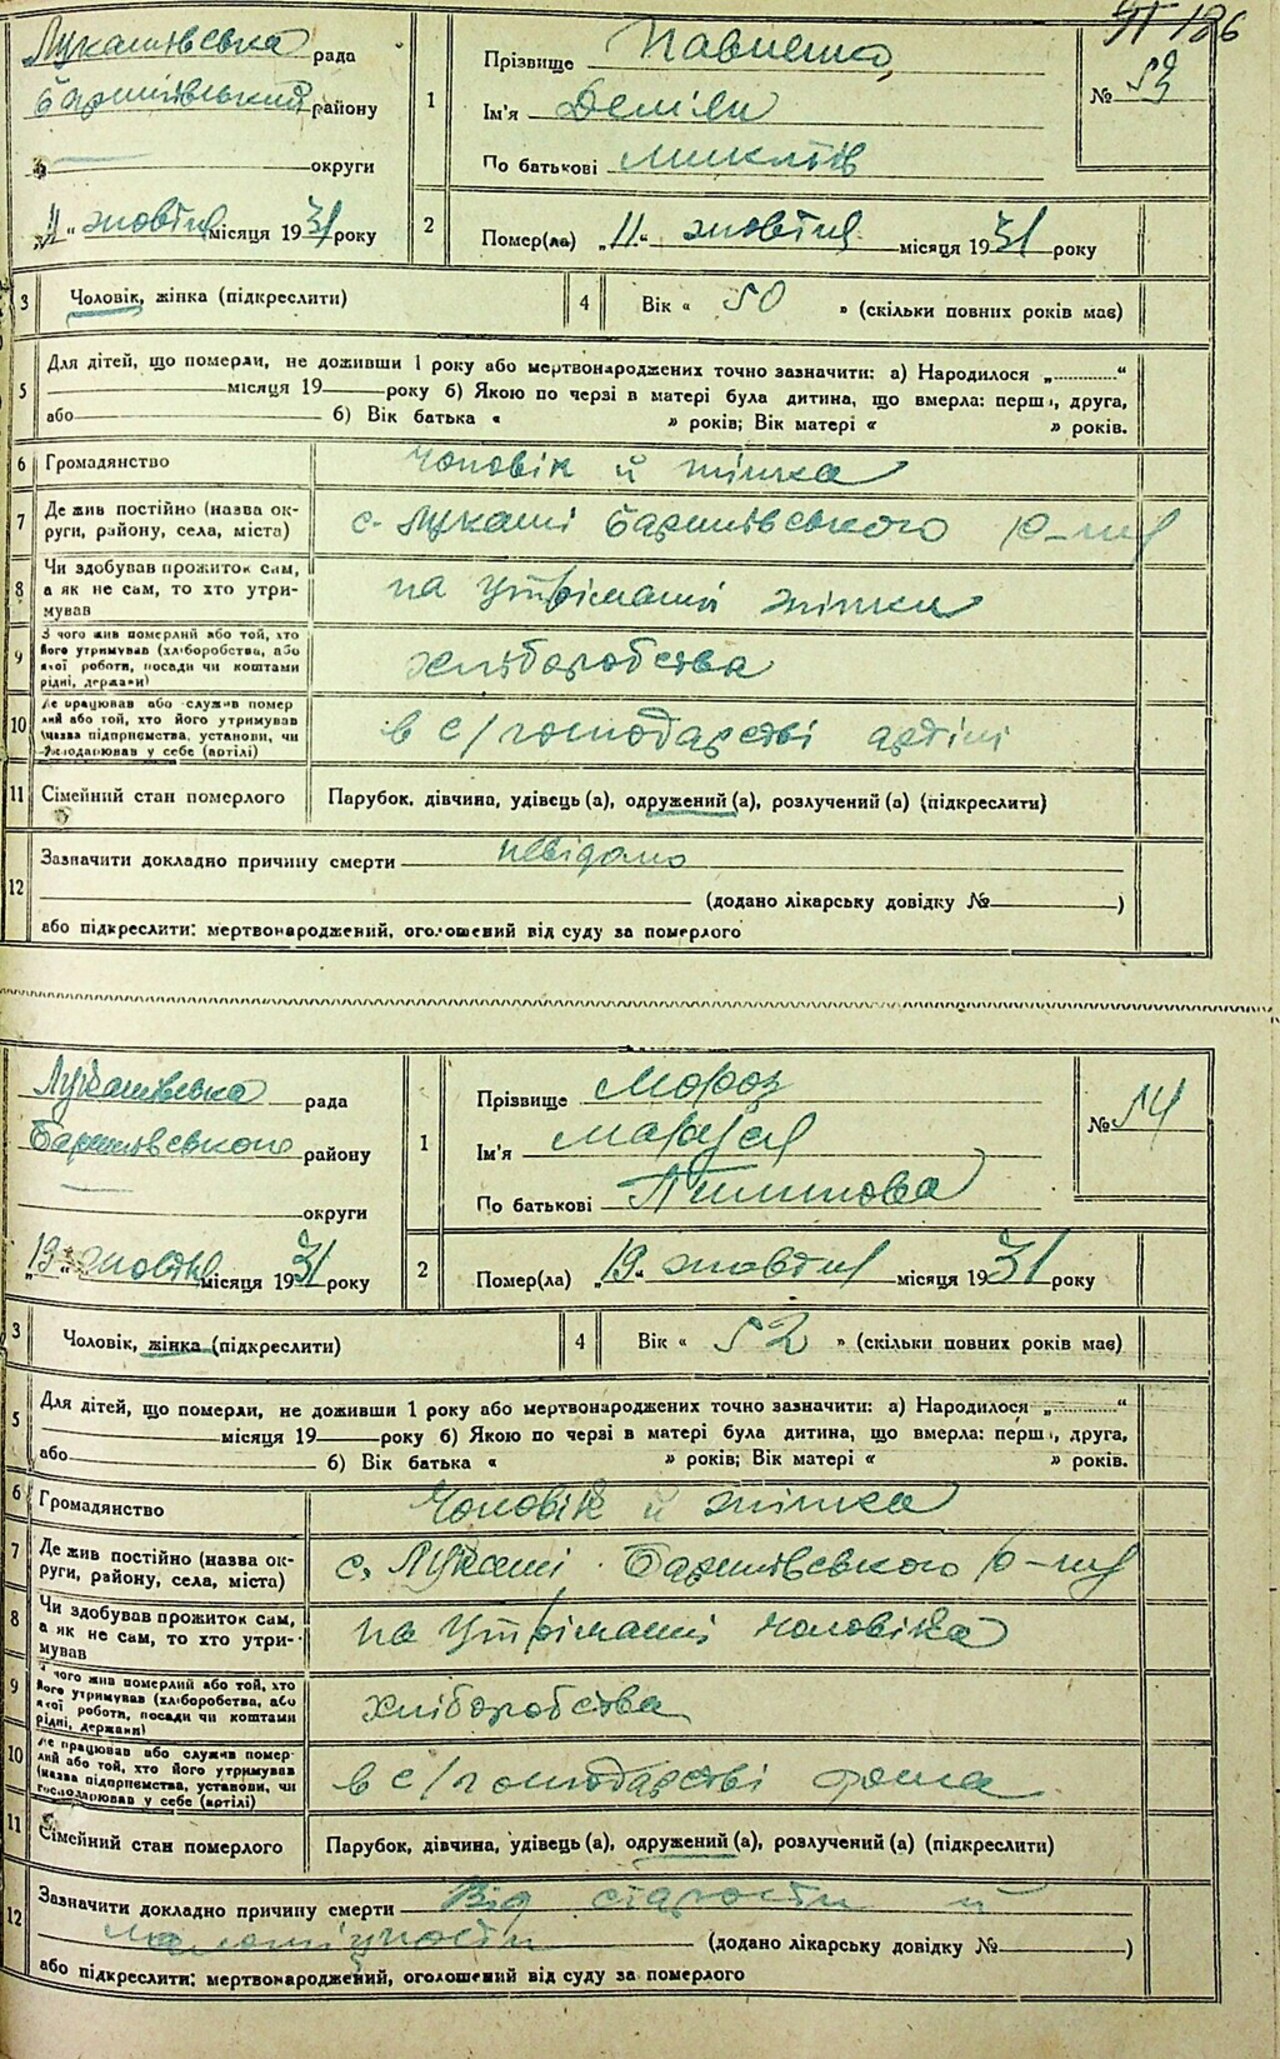 186
Лукашівська рада
Баришівський району
округи
„11“ жовтня місяця 1931 року
1
Прізвище Павленко
Ім'я Деміян
По батькові
№ 53
2
Помер(ла) „11“ жовтня місяця 1931 року
3
Чоловік, жінка (підкреслити)
4
Вік « 50 » (скільки повних років має)
5
Для дітей, що померли, не доживши 1 року або мертвонароджених точно зазначити: а) Народилося „.............“
місяця 19 року б) Якою по черзі в матері була дитина, що вмерла: перша, друга,
або б) Вік батька « » років; Вік матері « » років.
6 Громадянство Чоловік й жінка
7 Де жив постійно (назва ок-
руги, району, села, міста) с. Лукаші Баришівського р-ну
8 Чи здобував прожиток сам,
а як не сам, то хто утри-
мував на утріманні жінки
9 З чого жив померлий або той, хто
його утримував (хліборобства, або
якої роботи, посади чи коштами
рідні, держави) хліборобства
10 Де працював або служив помер
лий або той, хто його утримував
(назва підприємства, установи, чи
господарював у себе (артілі) в с/господарстві артілі
11 Сімейний стан померлого Парубок, дівчина, удівець (а), одружений (а), розлучений (а) (підкреслити)
12 Зазначити докладно причину смерти невідомо
(додано лікарську довідку № )
або підкреслити: мертвонароджений, оголошений від суду за померлого
Лукашівська рада
Баришівського району
округи
„19“ жовтня місяця 1931 року
1
Прізвище Мороз
Ім'я Маруся
По батькові
№ 54
2
Помер(ла) „19“ жовтня місяця 1931 року
3
Чоловік, жінка (підкреслити)
4
Вік « 52 » (скільки повних років має)
5
Для дітей, що померли, не доживши 1 року або мертвонароджених точно зазначити: а) Народилося „.............“
місяця 19 року б) Якою по черзі в матері була дитина, що вмерла: перша, друга,
або б) Вік батька « » років; Вік матері « » років.
6 Громадянство Чоловік й жінка
7 Де жив постійно (назва ок-
руги, району, села, міста) с. Лукаші Баришівського р-ну
8 Чи здобував прожиток сам,
а як не сам, то хто утри-
мував на утріманні чоловіка
9 З чого жив померлий або той, хто
його утримував (хліборобства, або
якої роботи, посади чи коштами
рідні, держави) хліборобства
10 Де працював або служив помер-
лий або той, хто його утримував
(назва підприємства, установи, чи
господарював у себе (артілі) в с/господарстві
11 Сімейний стан померлого Парубок, дівчина, удівець (а), одружений (а), розлучений (а) (підкреслити)
12 Зазначити докладно причину смерти Від старости й
(додано лікарську довідку № )
або підкреслити: мертвонароджений, оголошений від суду за померлого